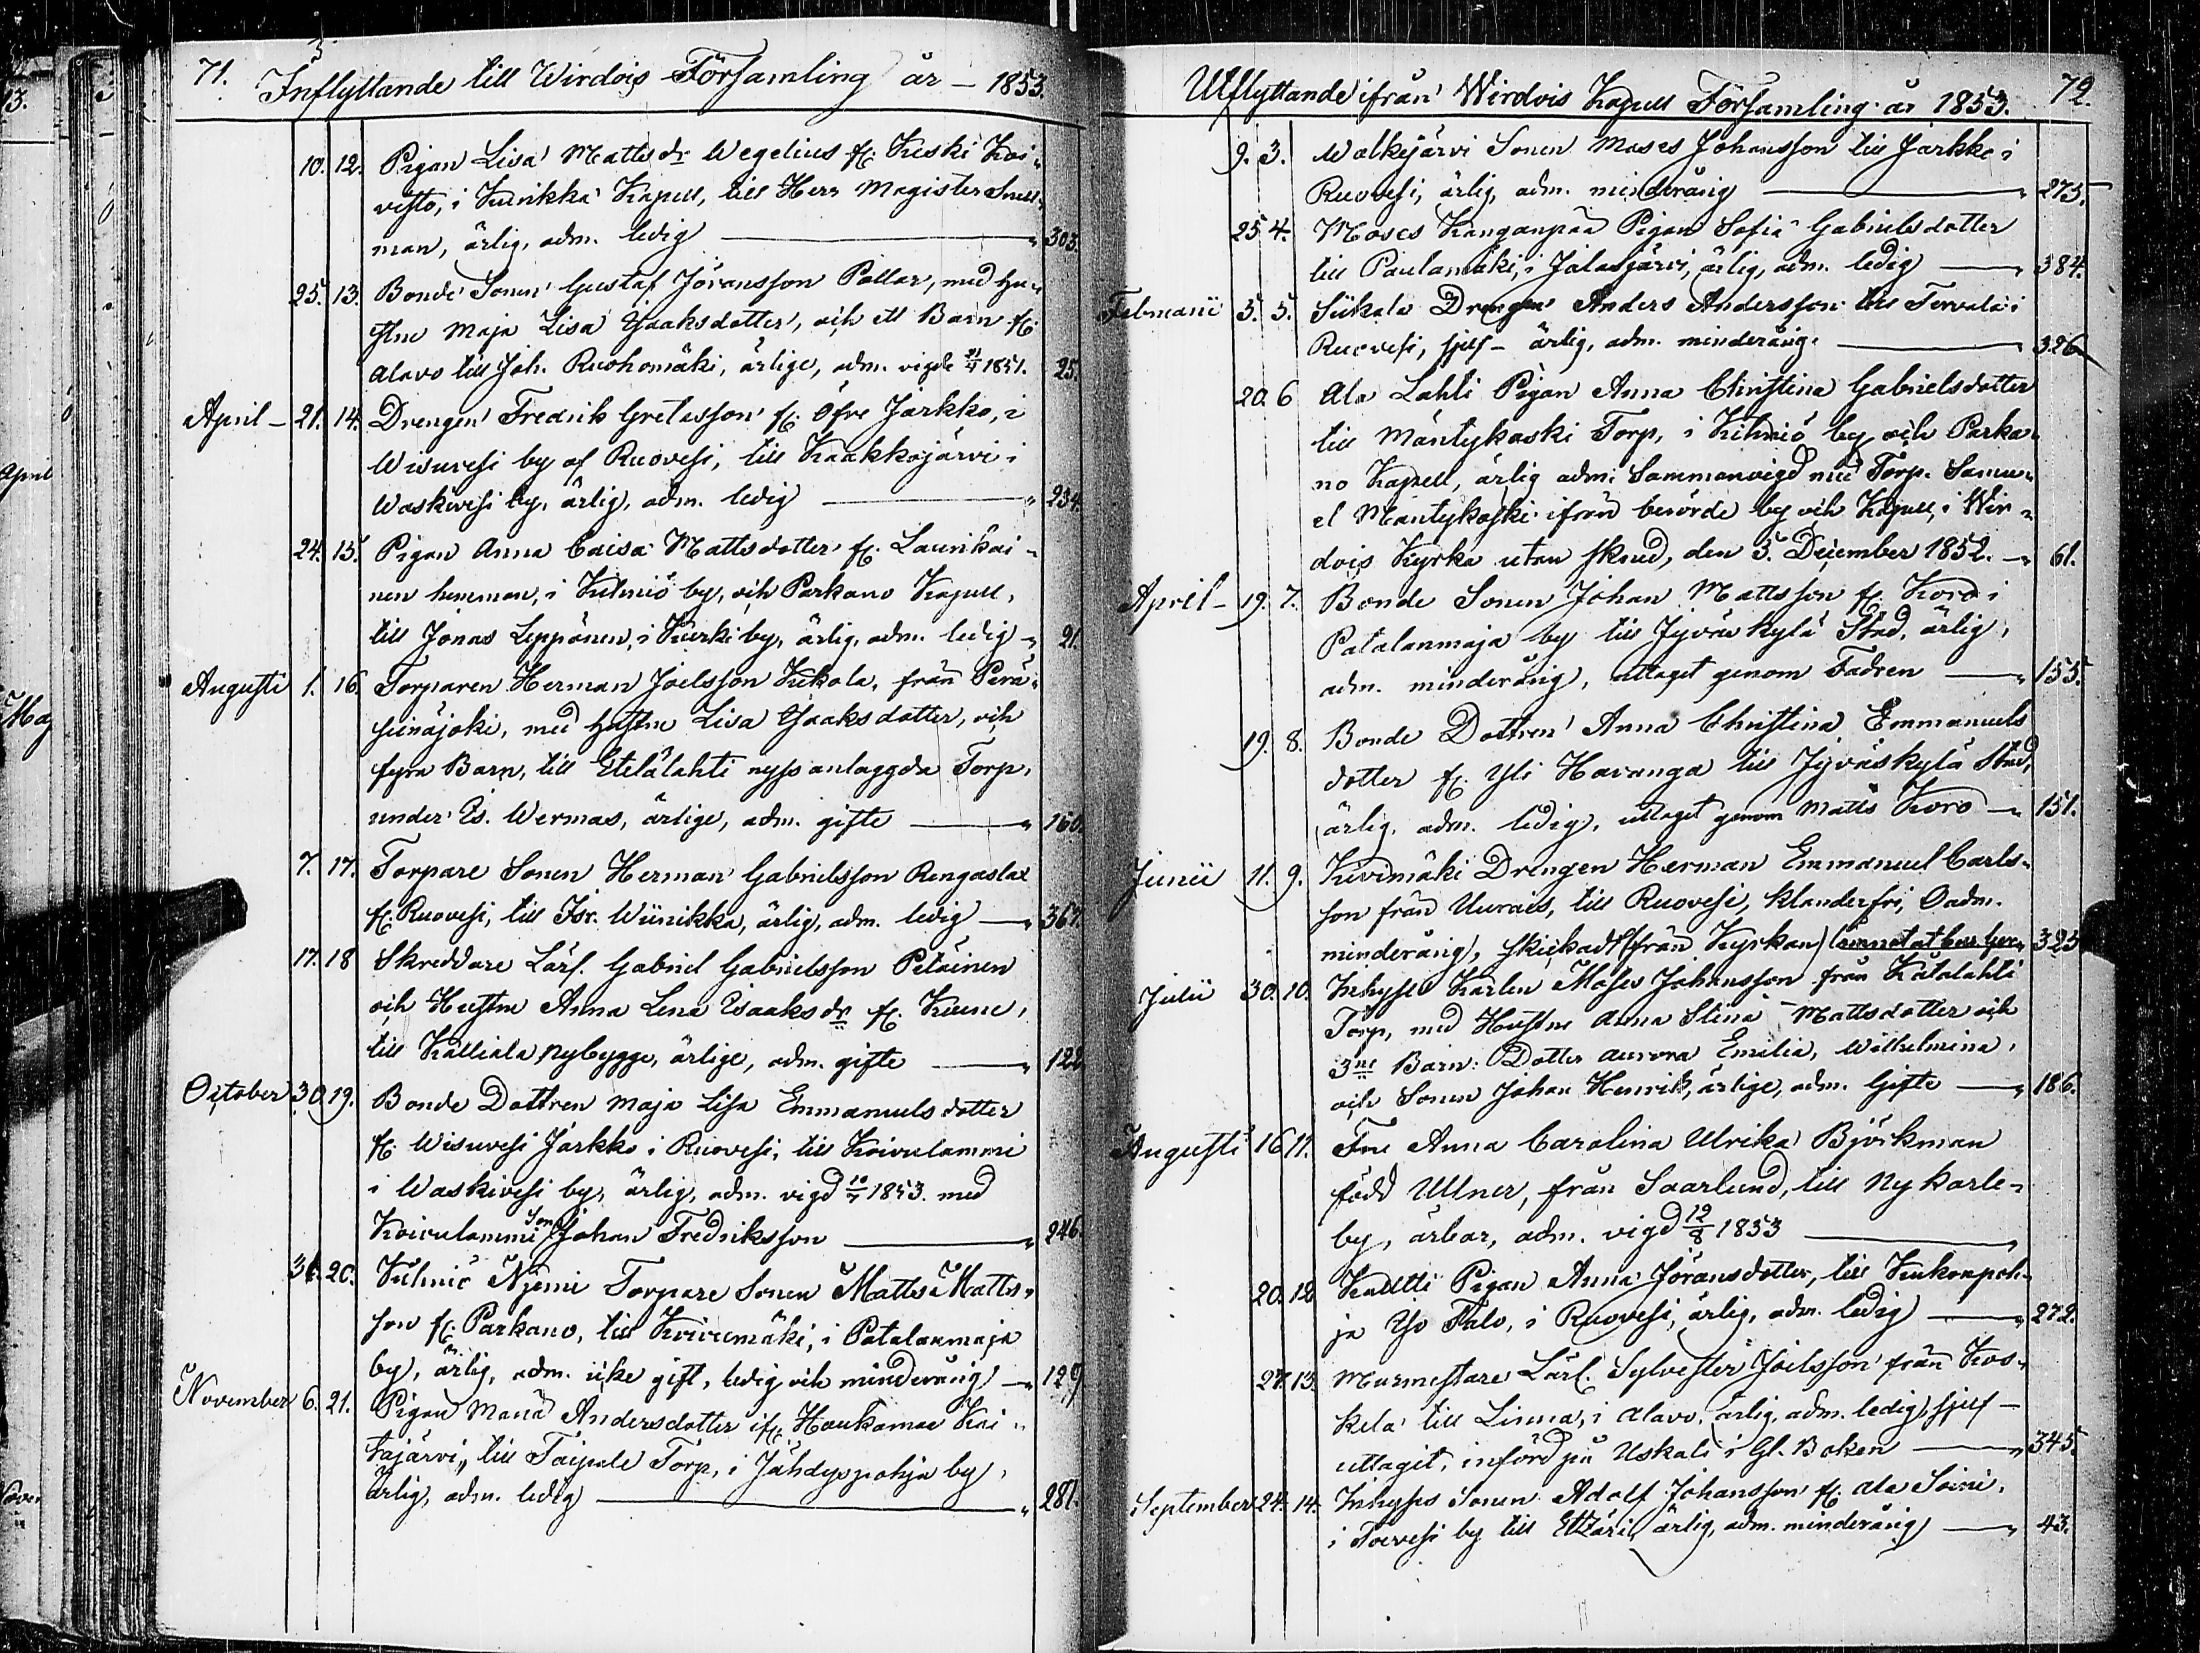 71. Inflyttande till Wirdois Församling år – 1853.
10. 12. Pigan Lisa Mattsdr Wegelius fr. Keski Koi-
visto, i Kurikka Kapell, till Herr Magister Snell-
man, ärlig, adm. ledig — " 303.
25. 13. Bonde Sonen Gustaf Jöransson Pollar, med Hu-
stru Maja Lisa Isaksdotter, och ett Barn fr.
Alavo till Joh. Ruohomäki, ärlige, adm. vigde 1851. 25.
April – 21. 14. Drengen Fredrik Gretasson fr. Öfre Jarkko, i
Wisuvesi by af Ruovesi, till Kaakkojärvi i
Waskivesi by, ärlig, adm. ledig — " 234.
24. 15. Pigan Anna Caisa Mattsdotter fr. Laurikai-
nen hemman, i Kihniö by, och Parkano Kapell,
till Jonas Leppänen, i Kurki by, ärlig, adm. ledig — " 21.
Augusti 1. 16. Torparen Herman Joelsson Kekola, från Perä-
seinäjoki, med Hustru Lisa Isaksdotter, och
fyra Barn, till Etelälahti nyss anlaggda Torp,
under Es. Wermas, ärlige, adm. gifte — " 160.
7. 17. Torpare Sonen Herman Gabrielsson Rengaslax
fr. Ruovesi, till Isr. Wiinikka, ärlig, adm. ledig — " 367.
17. 18 Skreddare Lärl. Gabriel Gabrielsson Peläinen
och Hustru Anna Lena Isaaksdr fr. Keuru,
till Källiala nybygge, ärlige, adm. gifte — " 122
October 30. 19. Bonde Dottren Maja Lisa Emmanuelsdotter
fr. Wisuvesi Jarkko i Ruovesi, till Koivulammi
i Waskivesi by, ärlig, adm. vigd 1853. med
Koivulammi Son Johan Fredriksson — " 246.
31. 20. Kihniö Njemi Torpare Sonen Matts Matts-
son fr. Parkano, till Koivumäki, i Patalanmaja
by, ärlig, adm. icke gift, ledig och minderårig — " 129
November 6. 21. Pigan Maria Andersdotter ifr. Haukamaa Kai-
tajärvi, till Taipale Torp, i Jähdyspohja by,
ärlig, adm. ledig — " 281.
Utflyttande ifrån Wirdois Kapell Församling år 1853. 72.
9. 3. Walkejärvi Sonen Moses Johansson till Jarkko i
Ruovesi, ärlig, adm. minderårig — " 275.
25 4. Moses Kangaspää Pigan Sofia Gabrielsdotter
till Paulamäki, i Jalasjärvi, ärlig, adm. ledig — " 384.
Februarii 5. 5. Siikala Drengen Anders Andersson till Tervala i
Ruovesi, sjelf – ärlig, adm. minderårig. — 326
20. 6 Ala Lahti Pigan Anna Christina Gabrielsdotter
till Mäntykoski Torp, i Kihniö by och Parka-
no Kapell, ärlig adm. Sammanvigd med Torp. Samu-
el Mäntykoski ifrån berörde by och Kapell, i Wir-
dois Kyrka utan skrud, den 5. December 1852. — " 61.
April – 19. 7. Bonde Sonen Johan Mattsson fr. Koro i
Patalanmaja by till Jyväskylä Stad, ärlig,
adm. minderårig, uttaget genom Fadren — " 155.
19. 8. Bonde Dottren Anna Christina Emmanuels
dotter fr. Yli Havanga till Jyväskylä Stad,
ärlig, adm. ledig, uttaget genom Matts Koro — " 151.
Junii 11. 9. Kivimäki Drengen Herman Emmanuel Carls-
son från Uurais, till Ruovesi, klanderfri, Oadm.
minderårig, skickadt från Kyrkan 325
Julii 30. 10. Inhyses Karlen Moses Johansson från Kätalahti
Torp, med Hustru Anna Stina Mattsdotter och
3ne Barn: Dotter Aurora Emilia, Wilhelmina,
och Sonen Johan Henrik, ärlige, adm. Gifte — " 186.
Augusti 16 11. Fru Anna Carolina Ulrika Björkman
född Ullner, från Saarlund, till Nykarle-
by, ärbar, adm. vigd 12/8 1853 —
20. 12 Pigan Anna Jöransdotter, till Kukonpoh-
ja Iso Talo, i Ruovesi, ärlig, adm. ledig — " 272.
27. 13. Murmestare Lärl. Sylvester Joelsson från Kos-
kela till Linna, i Alavo, ärlig, adm. ledig, sjelf –
uttagit, införd på Uskali i Gl. Boken — " 345.
September 24. 14. Inhyses Sonen Adolf Johansson fr. Ala Soini,
i Toivesi by till Etzäri, ärlig, adm. minderårig — " 43.